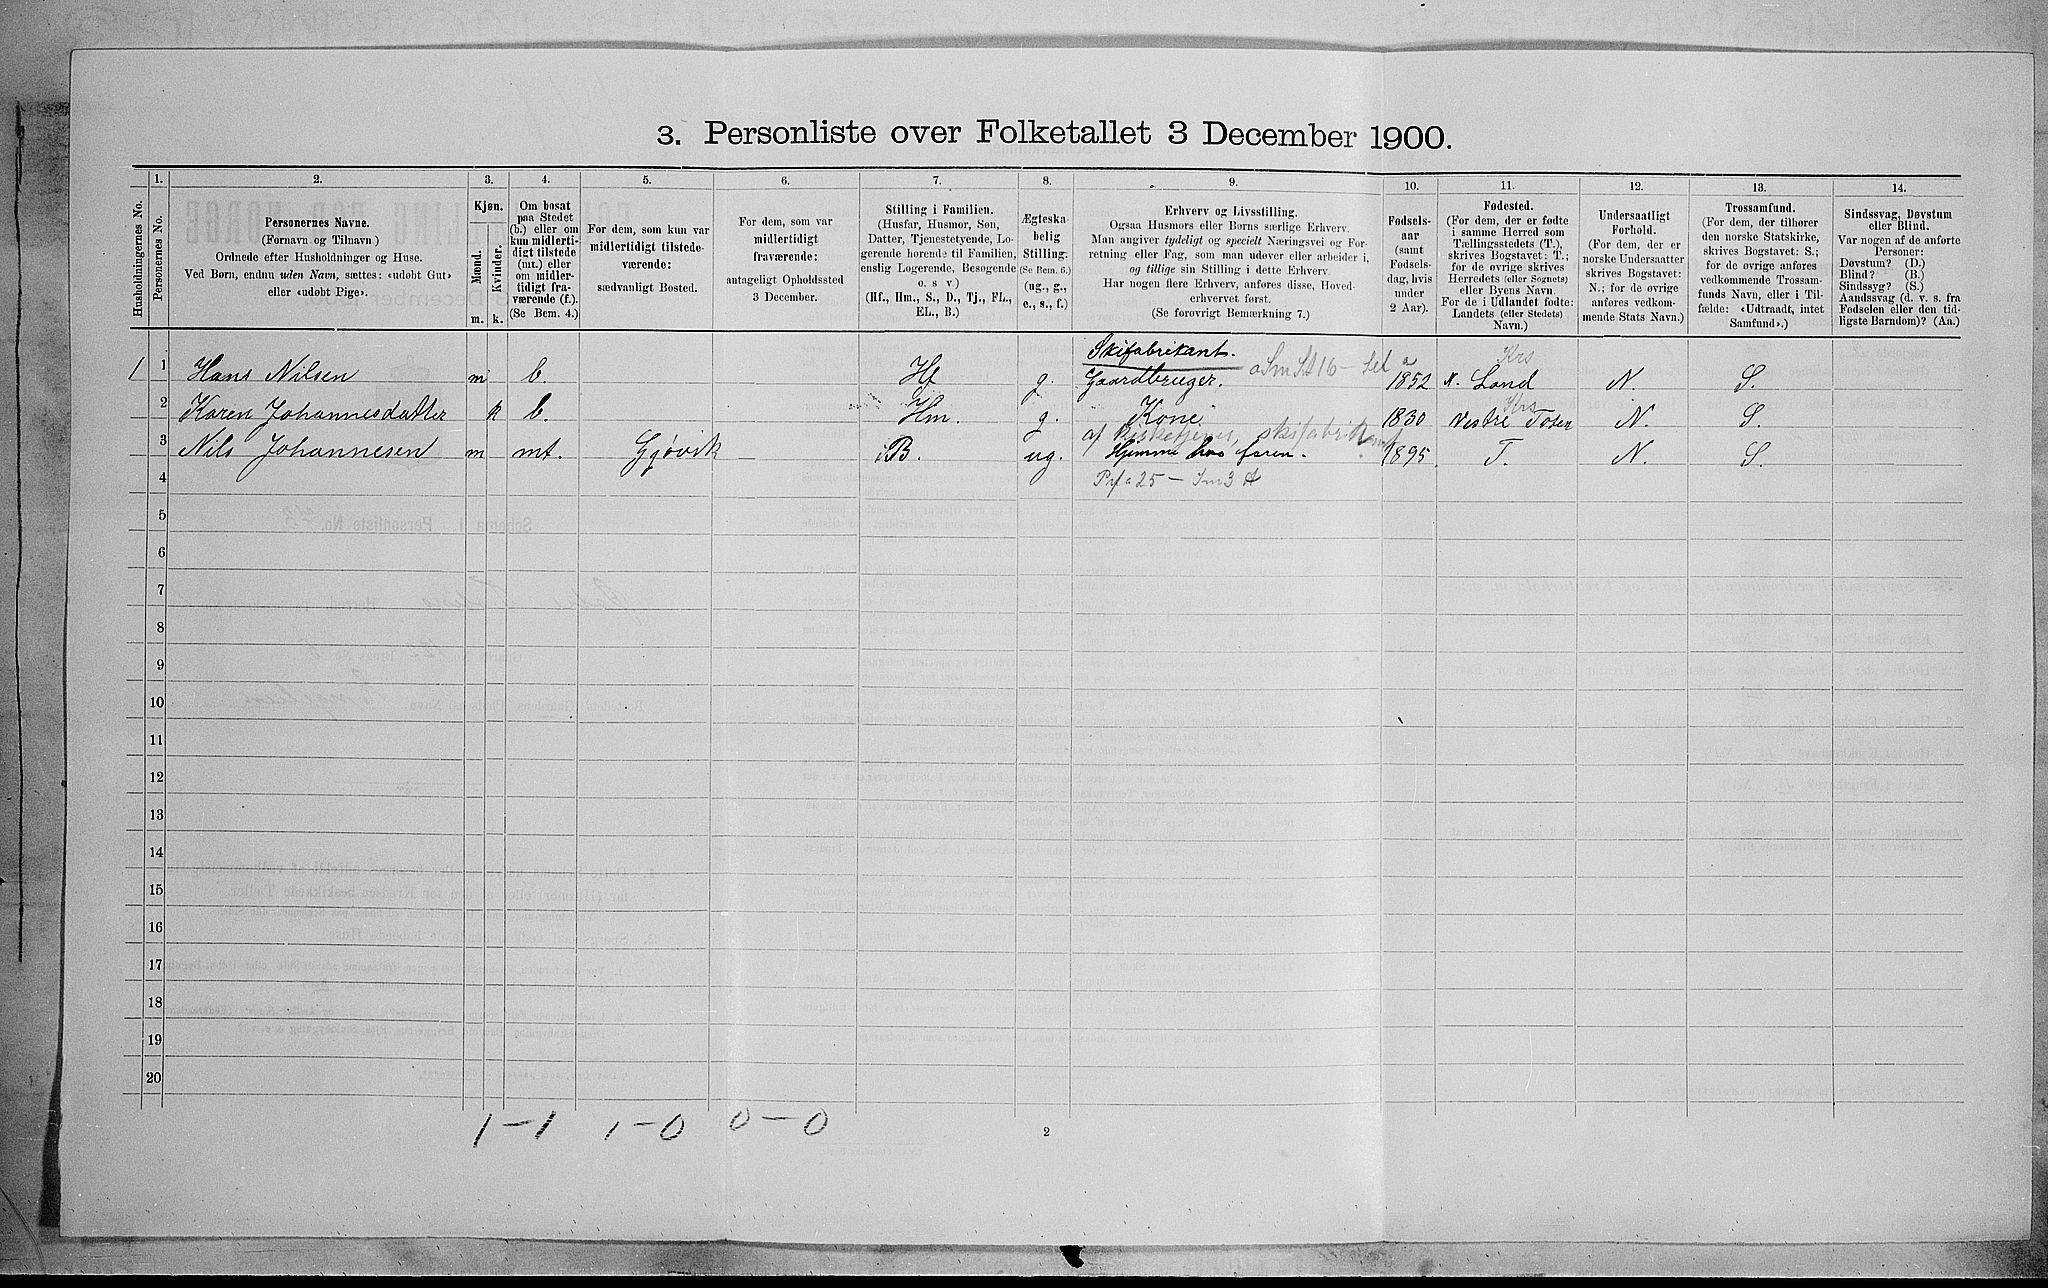 3. Personliste over Folketallet 3 December 1900.
1. 2. 3. 4. 5. 6. 7. 8. 9. 10. 11. 12. 13. 14.
Husholdningernes No.
Personernes No.
Personernes Navne.
(Fornavn og Tilnavn)
Ordnede efter Husholdninger og Huse.
Ved Børn, endnu uden Navn, sættes: «udøbt Gut»
eller «udøbt Pige».
Kjøn.
Mænd.
Kvinder.
m. k.
Om bosat
paa Stedet
(b.) eller om
kun midlerti-
digt tilstede
(mt.) eller
om midler-
tidigt fra-
værende (f.).
(Se Bem. 4.)
For dem, som kun var
midlertidigt tilstede-
værende:
sædvanligt Bosted.
For dem, som var
midlertidigt
fraværende:
antageligt Opholdssted
3 December.
Stilling i Familien.
(Husfar, Husmor, Søn,
Datter, Tjenestetyende, Lo-
gerende hørende til Familien,
enslig Logerende, Besøgende
o. s. v.)
(Hf., Hm., S., D., Tj., FL.,
EL., B.)
Ægteska-
belig
Stilling.
(Se Bem. 6.)
(ug., g.,
e., s., f.)
Erhverv og Livsstilling.
Ogsaa Husmors eller Børns særlige Erhverv.
Man angiver tydeligt og specielt Næringsvei og For-
retning eller Fag, som man udøver eller arbeider i,
og tillige sin Stilling i dette Erhverv.
Har nogen flere Erhverv, anføres disse, Hoved-
erhvervet først.
(Se forøvrigt Bemærkning 7.)
Fødsels-
aar
(samt
Fødsels-
dag, hvis
under
2 Aar).
Fødested.
(For dem, der er fødte
i samme Herred som
Tællingsstedets (T.),
skrives Bogstavet: T.;
for de øvrige skrives
Herredets (eller Sognets)
eller Byens Navn.
For de i Udlandet fødte:
Landets (eller Stedets)
Navn.)
Undersaatligt
Forhold.
(For dem, der er
norske Undersaatter
skrives Bogstavet:
N.; for de øvrige
anføres vedkom-
mende Stats Navn.)
Trossamfund.
(For dem, der tilhører
den norske Statskirke,
skrives Bogstavet: S.;
for de øvrige anføres
vedkommende Trossam-
funds Navn, eller i Til-
fælde: «Udtraadt, intet
Samfund».)
Sindssvag, Døvstum
eller Blind.
Var nogen af de anførte
Personer:
Døvstum? (D.)
Blind? (B.)
Sindssyg? (S.)
Aandssvag (d. v. s. fra
Fødselen eller den tid-
ligste Barndom)? (Aa.)
Skifabrikant. Krs
1 1 Hans Nilsen m b. Hf g. Gaardbruger. 1852 N. Land N. S.
Krs
2 Karen Johannesdatter k b. Hm. g. Kone 1830 Vestre Toten N. S.
3 Nils Johannesen m mt. Gjøvik B. ug. Hjemme hos faren. 1895. T. N. S.
4
5
6
7
8
9
10
11
12
13
14
15
16
17
18
19
20
1 – 1 1 – 0 0 – 0
2